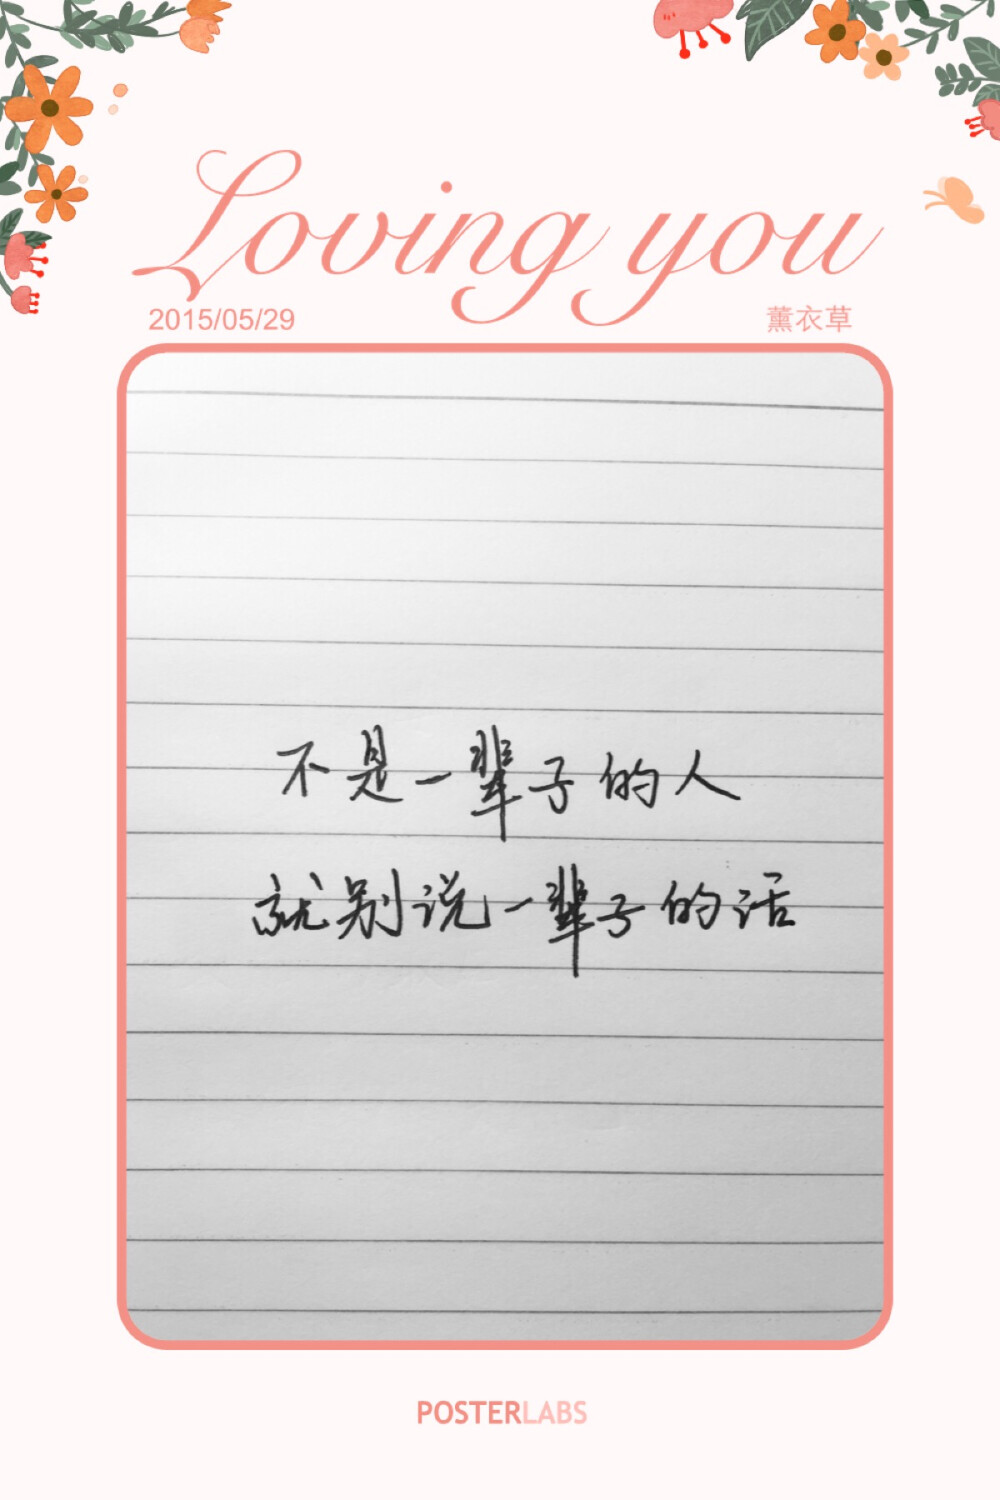 Loving you
2015/05/29 薰衣草
不是一辈子的人
就别说一辈子的话
POSTERLABS